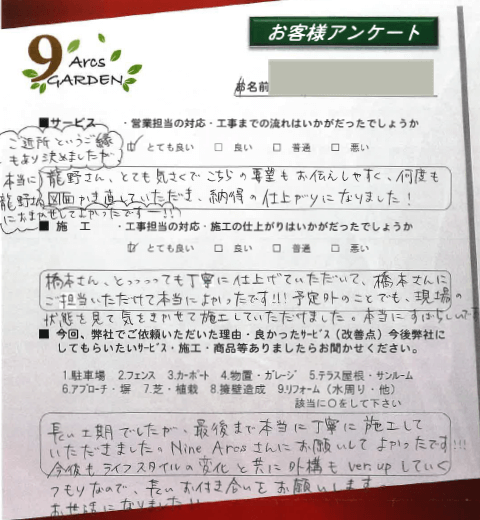 9 Arcs GARDEN
お客様アンケート
お名前
■サービス ・営業担当の対応・工事までの流れはいかがだったでしょうか
☑ とても良い □ 良い □ 普通 □ 悪い
ご近所というご縁
もあり決めましたが
本当に
龍野さん
におまかせしてよかったですー!!!
龍野さん、とても気さくでこちらの要望もお伝えしやすく、何度も
図面かき直していただき、納得の仕上がりになりました!
■施 工 ・工事担当の対応・施工の仕上がりはいかがだったでしょうか
☑ とても良い □ 良い □ 普通 □ 悪い
橋本さん、とっっっても丁寧に仕上げていただいて、橋本さんに
ご担当いただけて本当によかったです!!! 予定外のことでも、現場の
状態を見て気をきかせて施工していただけました。本当にすばらしいです
■ 今回、弊社でご依頼いただいた理由・良かったサービス(改善点)今後弊社に
してもらいたいサービス・施工・商品等ありましたらお聞かせください。
1.駐車場 2.フェンス 3.カーポート 4.物置・ガレージ 5.テラス屋根・サンルーム
6.アプローチ・塀 7.芝・植栽 8.擁壁造成 9.リフォーム(水周り・他)
該当に○をして下さい
長い工期でしたが、最後まで本当に丁寧に施工して
いただきました。Nine Arcsさんにお願いしてよかったです!!!
今後もライフスタイルの変化と共に外構もver.upしていく
つもりなので、長いお付き合いをお願いします。
お世話になりました